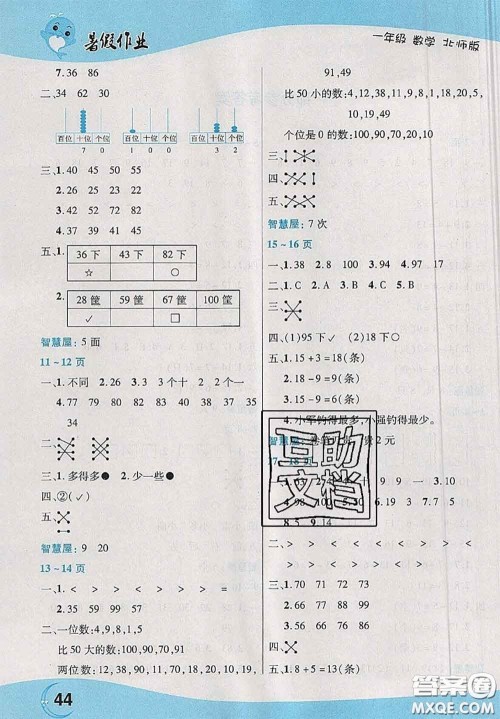 暑假作业
一年级 数学 北师版
7.36 86
二、34 62 30
百位 十位 个位 百位 十位 个位 百位 十位 个位
7 0 1 0 0 3 2
三、1.40 40 50 55
2.37 45 53
3.26 25 23 22
4.77 66 55 44
五、1.
36 下 43 下 82 下
☆ ○
2.
28 筐 59 筐 67 筐 100 筐
✓ ○
智慧屋:5 面
11~12 页
一、1.不同 2.26 3.3 个十 十二 2 个一
4.67 76
二、
三、1.多得多● 2.少一些●
四、②(✓)
五、
智慧屋:9 20
13~14 页
一、1.< > < > < > < > <
2.35 59 64 90
二、一位数:4,9,8,1,5
比 50 大的数:100,90,70,91
两位数:12,38,90,11,18,70,20,10,19,40,
91,49
比 50 小的数:4,12,38,11,9,8,1,18,20,5,
10,19,40,49
个位是 0 的数:100,90,70,20,10
三、
四、
五、
智慧屋:7 次
15~16 页
一、1.38 2.8 100 3.94 4.97 17
二、1.30 39 48 57
2.41 51 61 71
三、
四、(1)95 下 ✓ (2)18 下○
五、1.15+3=18(条)
2.18-9=9(条)
3.15-9=6(条)
4.小军钓得最多,小强钓得最少。
智慧屋:
贵 2 元
17~18 页
9 9 一 3.10
4.98 5.30 6.91 3.19 7.5 7
8.5 9.14
二、> < > < > > > < >
三、1.70 71 72 73
2.66 77 88 99
3.51 48 45 42
四、
五、1.8+5=13(条)
互助文档
44
答案圈
MXQE.COM